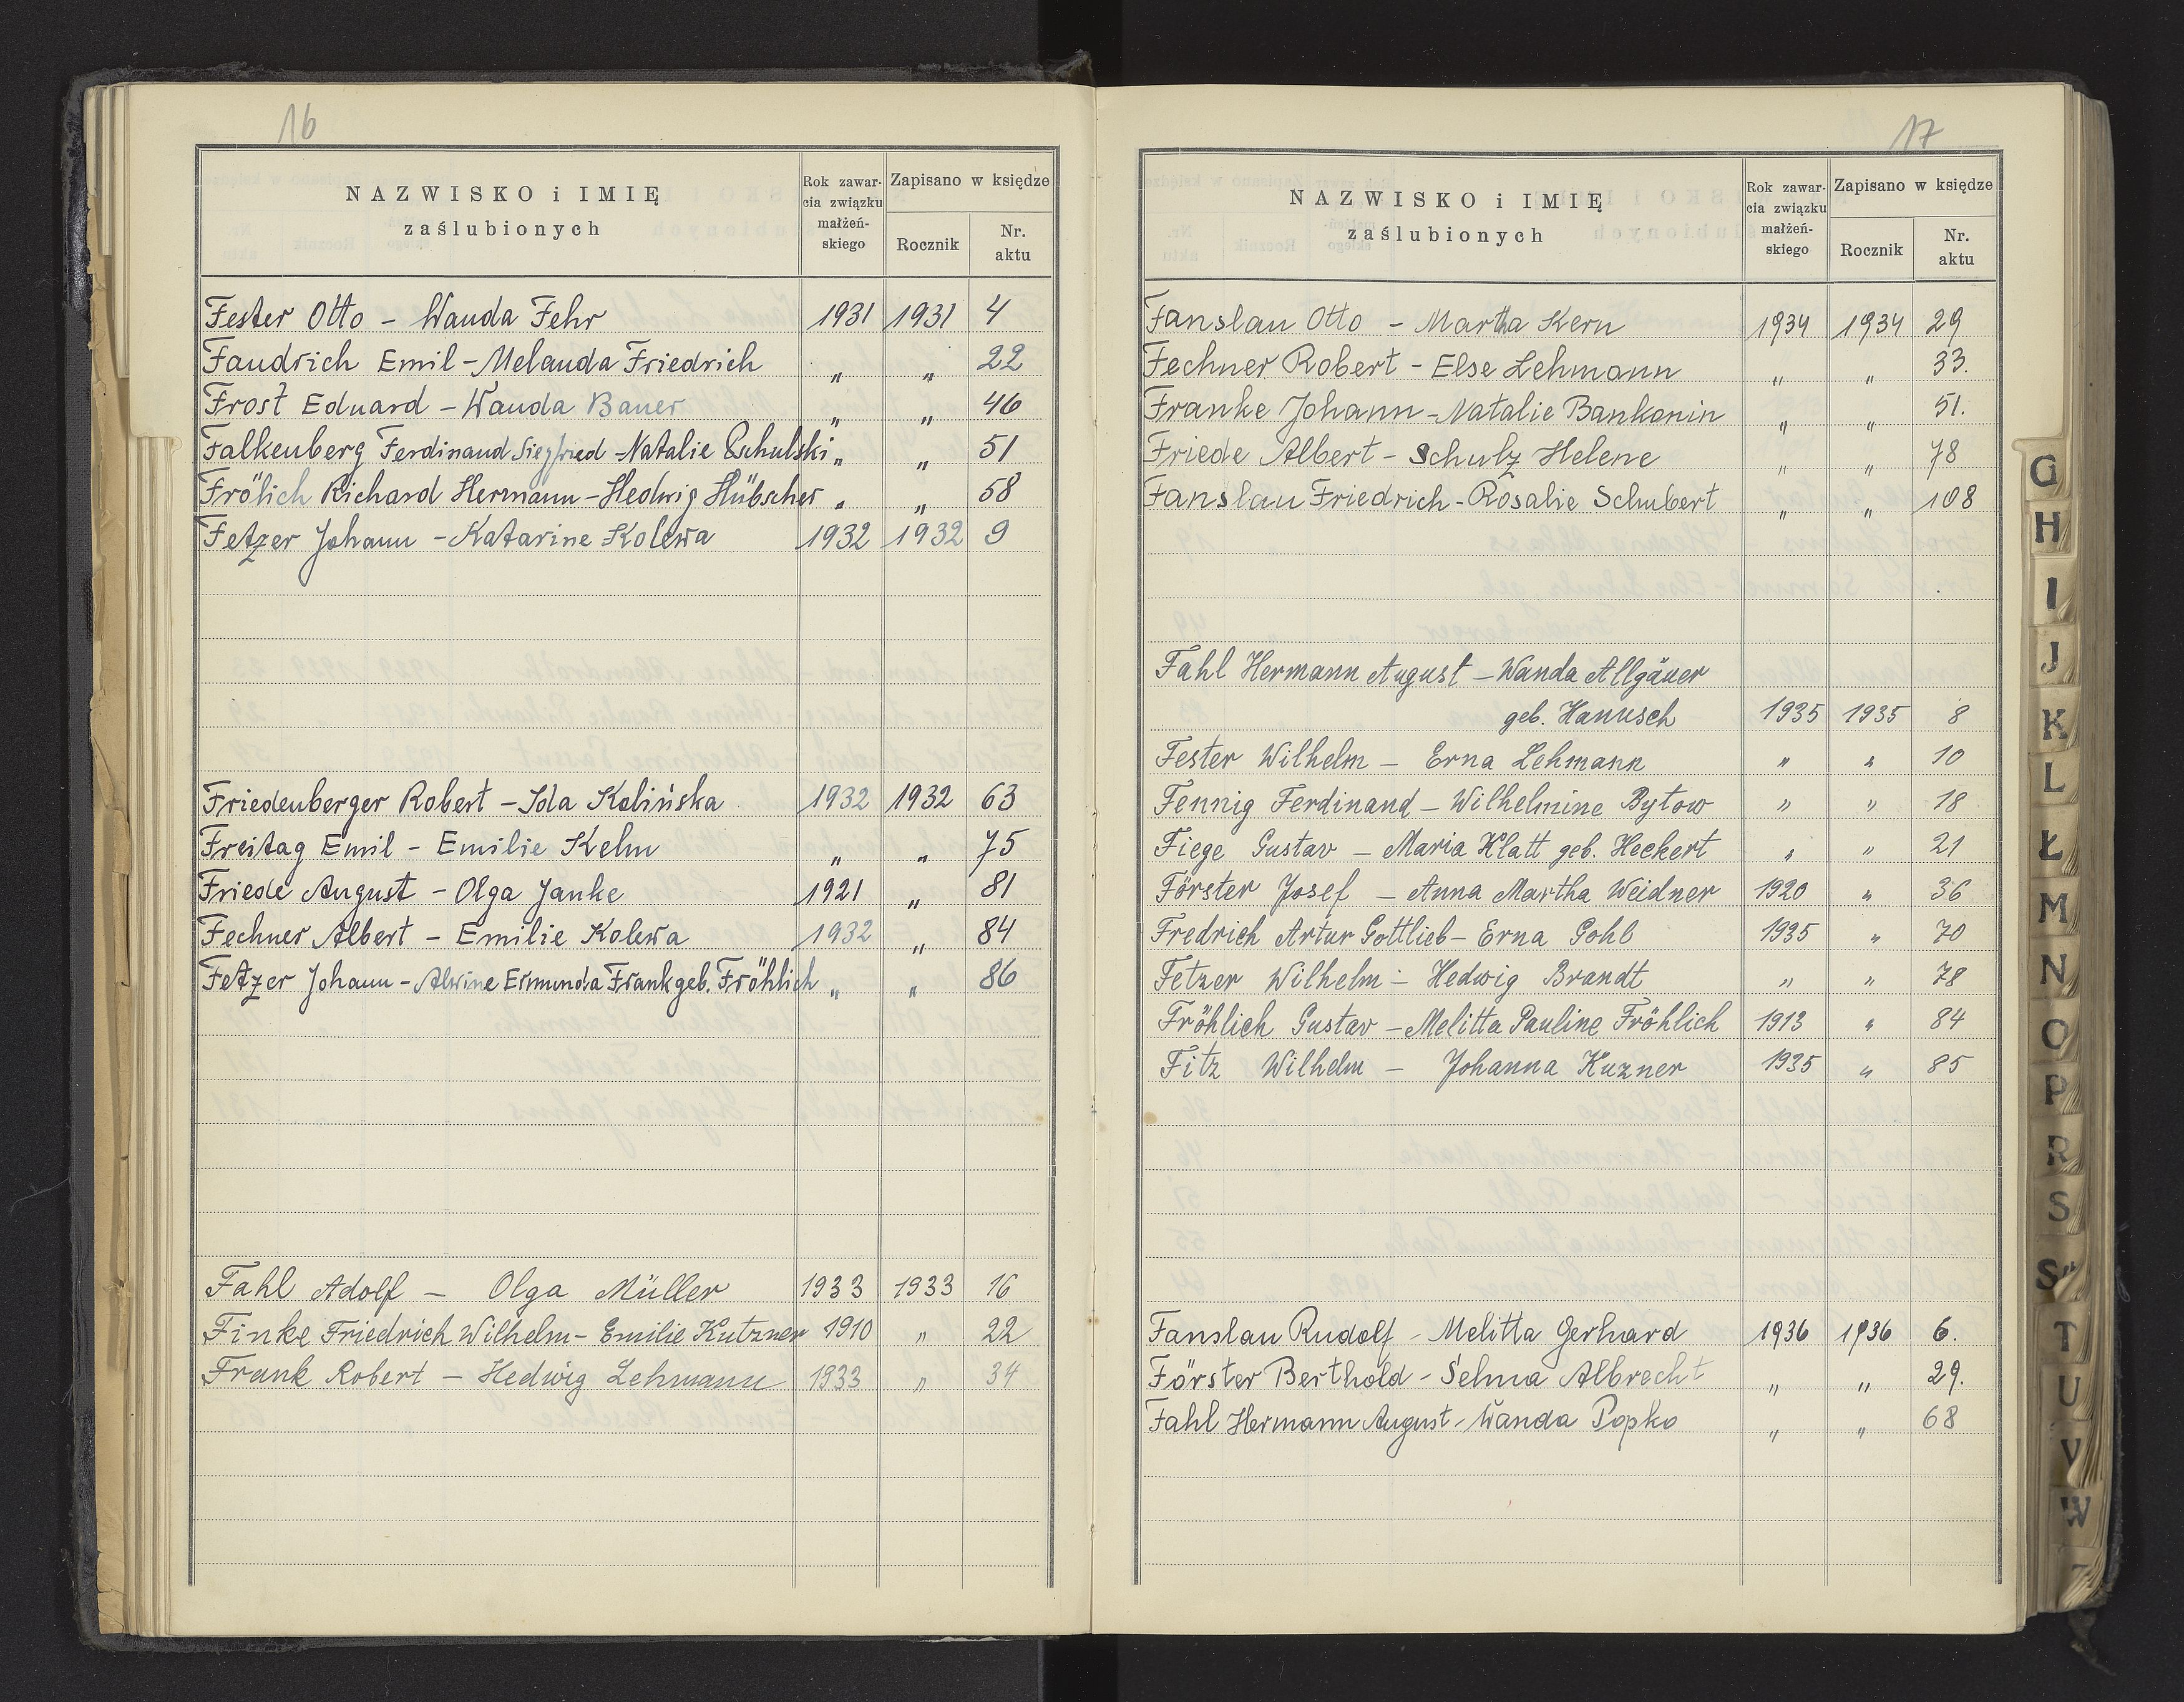 16
NAZWISKO i IMIĘ
zaślubionych
Rok zawar-
cia związku
małżeń-
skiego
Zapisano w księdze
Rocznik
Nr.
aktu
Fester Otto - Wanda Fehr 1931 1931 4
Faudrich Emil - Melanda Friedrich " " 22
Frost Eduard - Wanda Bauer " " 46
Falkenberg Ferdinand Siegfried - Natalie " " 51
Frölich Richard Hermann - Hedwig Hübscher " " 58
Fetzer Johann - Katarine Kolewa 1932 1932 9
Friedenberger Robert - Ida Kalińska 1932 1932 63
Freitag Emil - Emilie Kelm " " 75
Friede August - Olga Janke 1921 " 81
Fechner Albert - Emilie Kolewa 1932 " 84
Fetzer Johann - Alwine Ermunda Frank geb. Fröhlich " " 86
Fahl Adolf - Olga Müller 1933 1933 16
Finke Friedrich Wilhelm - Emilie Kutzner 1910 " 22
Frank Robert - Hedwig Lehmann 1933 " 34
17
NAZWISKO i IMIĘ
zaślubionych
Rok zawar-
cia związku
małżeń-
skiego
Zapisano w księdze
Rocznik
Nr.
aktu
Fanslau Otto - Martha Kern 1934 1934 29
Fechner Robert - Else Lehmann " " 33.
Franke Johann - Natalie Bankonin " " 51.
Friede Albert - Schulz Helene " " 78
Fanslau Friedrich - Rosalie Schubert " " 108
Fahl Hermann August - Wanda Allgäuer
geb. Hanusch 1935 1935 8
Fester Wilhelm - Erna Lehmann " " 10
Fennig Ferdinand - Wilhelmine Bytow " " 18
Fiege Gustav - Maria Klatt geb. Heckert " " 21
Förster Josef - Anna Martha Weidner 1920 " 36
Fredrich Artur Gottlieb - Erna Gohl 1935 " 70
Fetzer Wilhelm - Hedwig Brandt " " 78
Fröhlich Gustav - Melitta Pauline Fröhlich 1913 " 84
Fitz Wilhelm - Johanna Kuzner 1935 " 85
Fanslau Rudolf - Melitta Gerhard 1936 1936 6.
Förster Berthold - Selma Albrecht " " 29.
Fahl Hermann August - Wanda Popko " " 68
G
H
I
J
K
L
Ł
M
N
O
P
R
S
Ś
T
U
V
W